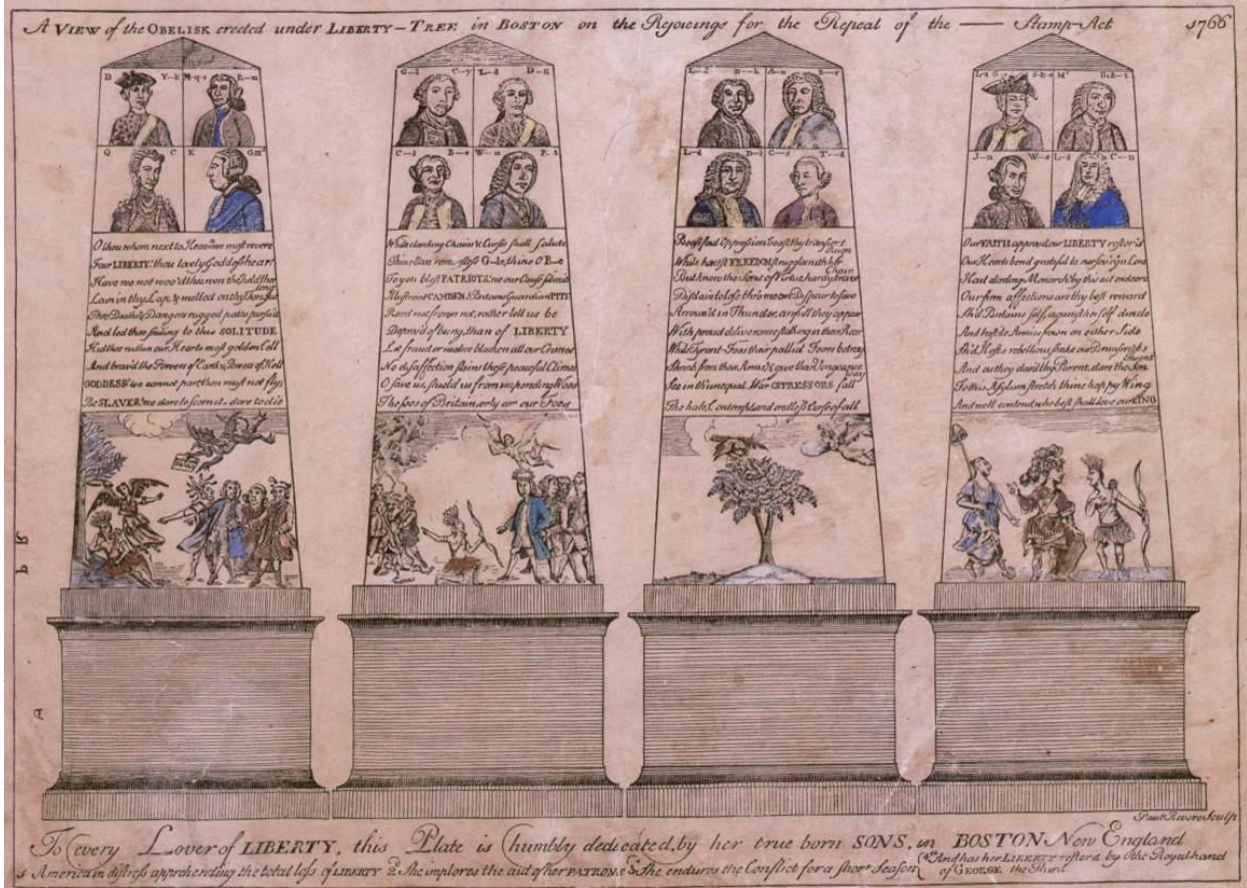 A VIEW of the OBELISK erected under LIBERTY-TREE in BOSTON on the Rejoicings for the Repeal of the —— Stamp-Act 1766
D Y-k M-q-s R-m
Q C K G
G-l C-y L-d D-n
C-l B-e W-m P-t
L-d D-l
C-s T-d
J-n W-s L-d C-n
O thou whom next to Heav'n we most revere
Fair LIBERTY! thou lovely Goddess hear!
Have we not woo'd thee, won thee, held thee long
Lain in thy Lap & melted on thy Tongue
Thro Deaths & Dangers rugged paths pursu'd
And led thee smiling to this SOLITUDE
Hid thee within our Hearts most golden Cell
And brav'd the Powers of Earth & Powers of Hell
GODDESS! we cannot part, thou must not fly;
Be SLAVES! we dare to scorn it, dare to die
While clanking Chains & Curses shall salute
Thine Ears remorsless G-le, thine O B-e
To you blest PATRIOTS, we our Cause submit
Illustrious CAMDEN, Britains Guardian, PITT
Recede not, frown not, rather let us be
Depriv'd of being, than of LIBERTY
Let fraud or malice blacken all our Crimes
No disaffection stains these peaceful Climes
O save us, shield us from impending Woes
The foes of Britain, only are our Foes
Boast foul Oppression, boast thy transient Reign
While honest FREEDOM struggles with her Chain
But know the Sons of Virtue, hardy brave
Disdain to lose thro' mean Dispair to save
Arrouw'd in Thunder, awfull they appear
With proud deliverance stalking in their Rear
While Tyrant-Foes their pallid Fears betray
Shrink from their Arms, & give their Vengeance way
See in th' unequal War OPPRESSORS fall
The hate, Contempt, and endless Curse of all
Our FAITH approv'd, our LIBERTY restor'd
Our Hearts bend grateful to our sov'reign Lord
Hail darling Monarch! by this act endear'd
Our firm affections are thy best reward
Sh'd Britains self, against her self divide
And hostile Armies frown on either Side
Sh'd Hosts rebellious, shake our Brunswick's
And as they dar'd thy Parent, dare the Son
To this Asylum stretch thine happy Wing
And we'll contend, who best shall love our KING
Paul Revere Sculp
To every Lover of LIBERTY, this Plate is humbly dedicated, by her true born SONS, in BOSTON New England
America in distress apprehending the total loss of LIBERTY 2 She implores the aid of her PATRONS 3 She endures the Conflict for a short Season 4 And has her LIBERTY restor'd by the Royal hand of GEORGE the Third